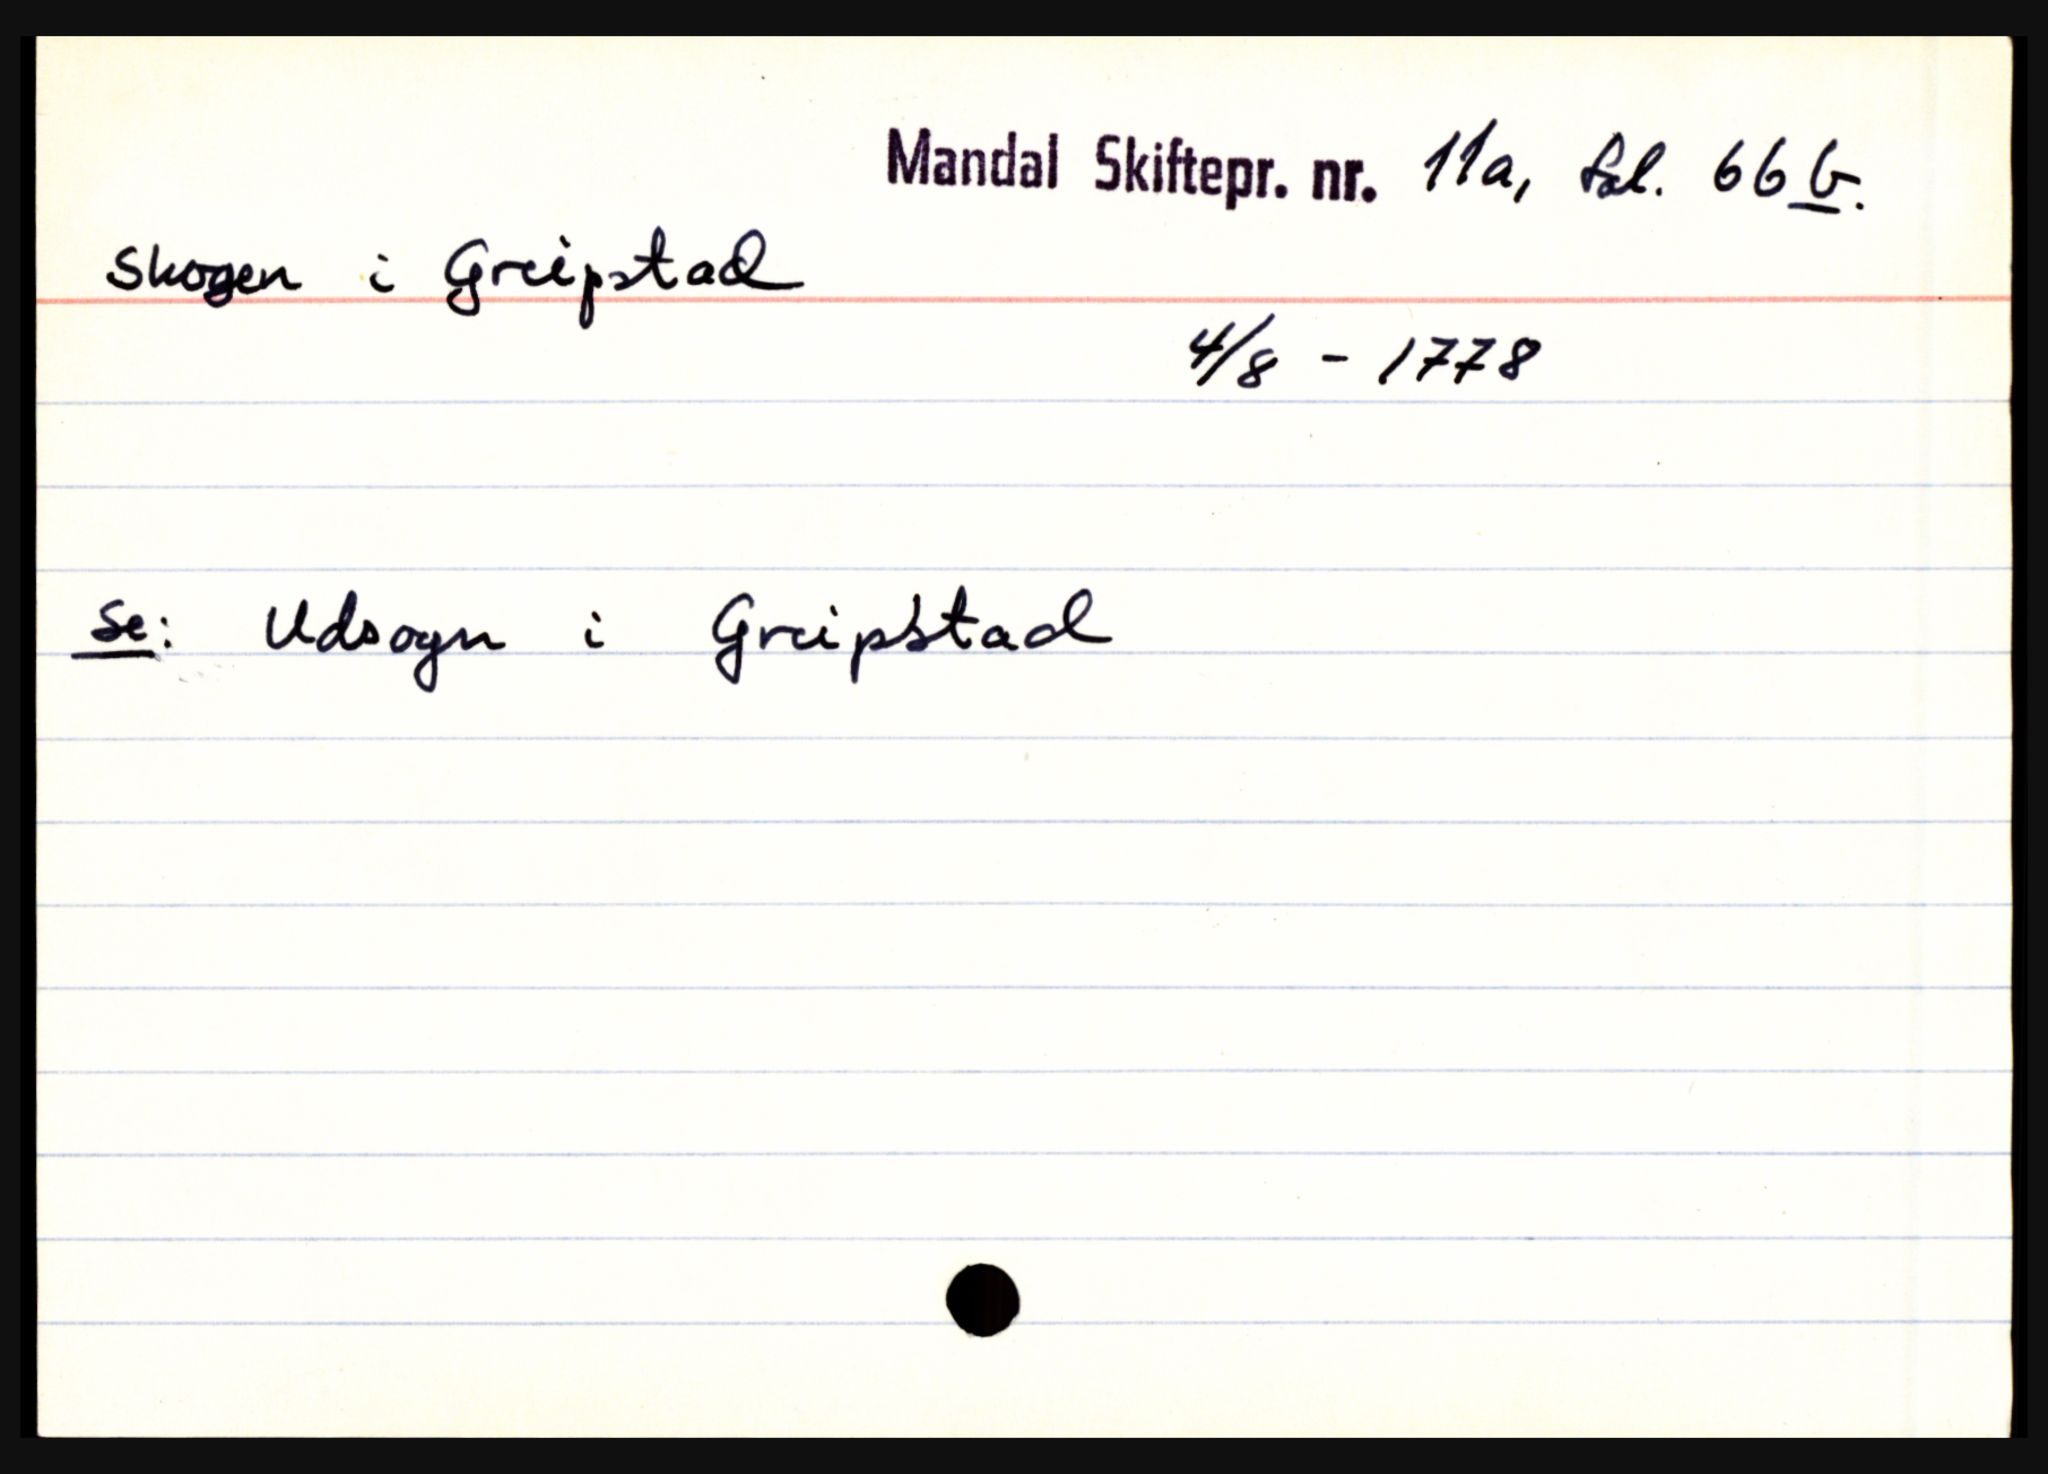 Mandal Skiftepr. nr. 11a, fol. 66 b.
Skogen i Greipstad
4/8 - 1778
Se: Udsogn i Greipstad